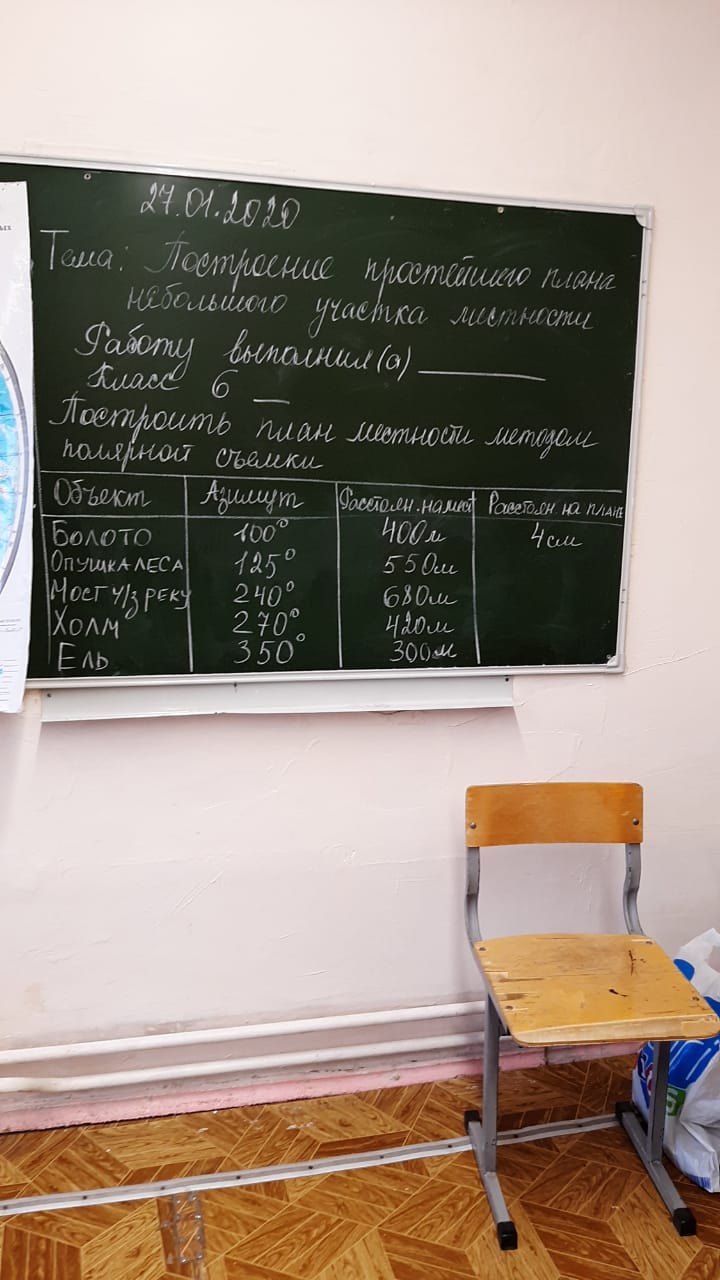 27.01.2020
Тема: Построение простейшего плана
небольшого участка местности
Работу выполнил(а)
Класс 6
Построить план местности методом
полярной съемки
Объект Азимут Расстоян. на мест Расстоян. на плане
Болото 100° 400м 4см
Опушка леса 125° 550м
Мост ч/з реку 240° 680м
Холм 270° 420м
Ель 350° 300м